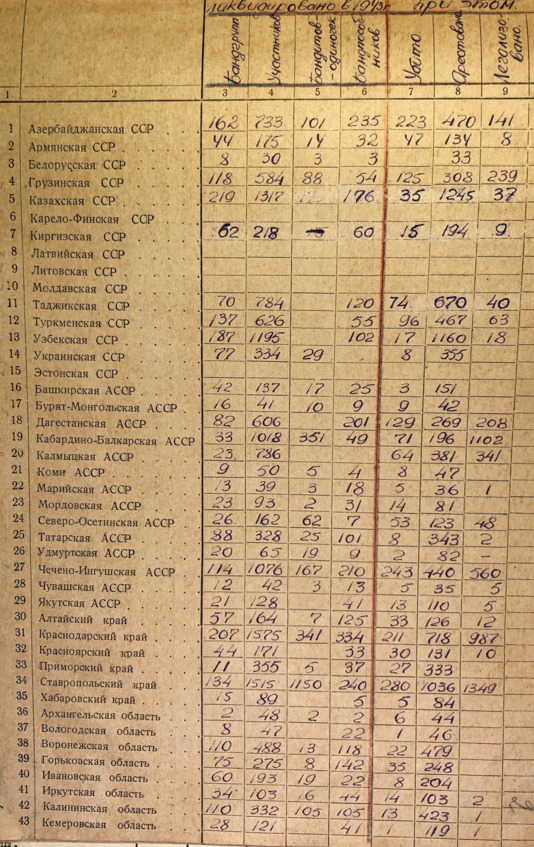 ликвидировано в 1943г. при этом:
Бандгрупп Участников Бандитов-одиночек Бандпособников Убито Арестовано Легализовано.
1 2 3 4 5 6 7 8 9
1 Азербайджанская ССР 162 733 101 235 223 470 141
2 Армянская ССР 44 175 14 32 47 134 8
3 Белорусская ССР 8 30 3 3 33
4 Грузинская ССР 118 584 88 54 125 308 239
5 Казахская ССР 219 1317 176 35 1245 37
6 Карело-Финская ССР
7 Киргизская ССР 62 218 60 15 194 9
8 Латвийская ССР
9 Литовская ССР
10 Молдавская ССР
11 Таджикская ССР 70 784 120 74 670 40
12 Туркменская ССР 137 626 55 96 467 63
13 Узбекская ССР 187 1195 102 17 1160 18
14 Украинская ССР 77 334 29 8 355
15 Эстонская ССР
16 Башкирская АССР 42 137 17 25 3 151
17 Бурят-Монгольская АССР 16 41 10 9 9 42
18 Дагестанская АССР 82 606 201 129 269 208
19 Кабардино-Балкарская АССР 33 1018 351 49 71 196 1102
20 Калмыцкая АССР 23 786 64 381 341
21 Коми АССР 9 50 5 4 8 47
22 Марийская АССР 13 39 3 18 5 36 1
23 Мордовская АССР 23 93 2 31 14 81
24 Северо-Осетинская АССР 26 162 62 7 53 123 48
25 Татарская АССР 88 328 25 101 8 343 2
26 Удмуртская АССР 20 65 19 9 2 82 –
27 Чечено-Ингушская АССР 114 1076 167 210 243 440 560
28 Чувашская АССР 12 42 3 13 5 35 5
29 Якутская АССР 21 128 41 13 110 5
30 Алтайский край 57 164 7 125 33 126 12
31 Краснодарский край 207 1575 341 334 211 718 987
32 Красноярский край 44 171 33 30 131 10
33 Приморский край 11 355 5 37 27 333
34 Ставропольский край 134 1515 1150 240 280 1036 1349
35 Хабаровский край 15 89 5 5 84
36 Архангельская область 2 48 2 2 6 44
37 Вологодская область 8 47 22 1 46
38 Воронежская область 110 488 13 118 22 479
39 Горьковская область 75 275 8 142 35 248
40 Ивановская область 60 193 19 22 8 204
41 Иркутская область 34 103 16 44 14 103 2
42 Калининская область 110 332 105 105 13 423 1
43 Кемеровская область 28 121 41 1 119 1